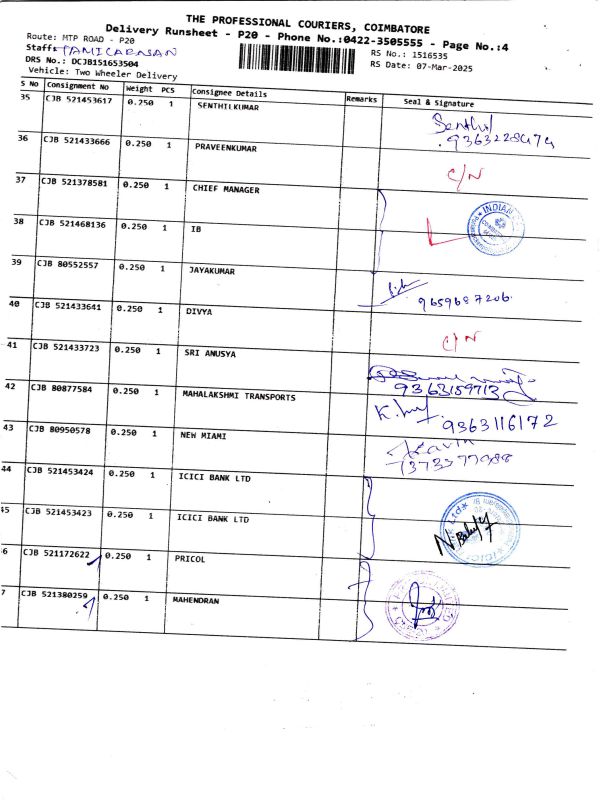 THE PROFESSIONAL COURIERS, COIMBATORE
Delivery Runsheet - P20 - Phone No.:0422-3505555 - Page No.:4
Route: MTP ROAD - P20
RS No.: 1516535
Staff: TAMILARASAN
RS Date: 07-Mar-2025
DRS No.: DCJB151653504
Vehicle: Two Wheeler Delivery
S No Consignment No Weight PCS Consignee Details Remarks Seal & Signature
35 CJB 521453617 0.250 1 SENTHILKUMAR Senthil
36 CJB 521433666 0.250 1 PRAVEENKUMAR C/N
37 CJB 521378581 0.250 1 CHIEF MANAGER INDIAN
38 CJB 521468136 0.250 1 IB
39 CJB 80552557 0.250 1 JAYAKUMAR 9659687206
40 CJB 521433641 0.250 1 DIVYA C/N
41 CJB 521433723 0.250 1 SRI ANUSYA 9363159713
42 CJB 80877584 0.250 1 MAHALAKSHMI TRANSPORTS 9363116172
43 CJB 80950578 0.250 1 NEW MIAMI
44 CJB 521453424 0.250 1 ICICI BANK LTD
45 CJB 521453423 0.250 1 ICICI BANK LTD
6 CJB 521172622 0.250 1 PRICOL
7 CJB 521380259 0.250 1 MAHENDRAN